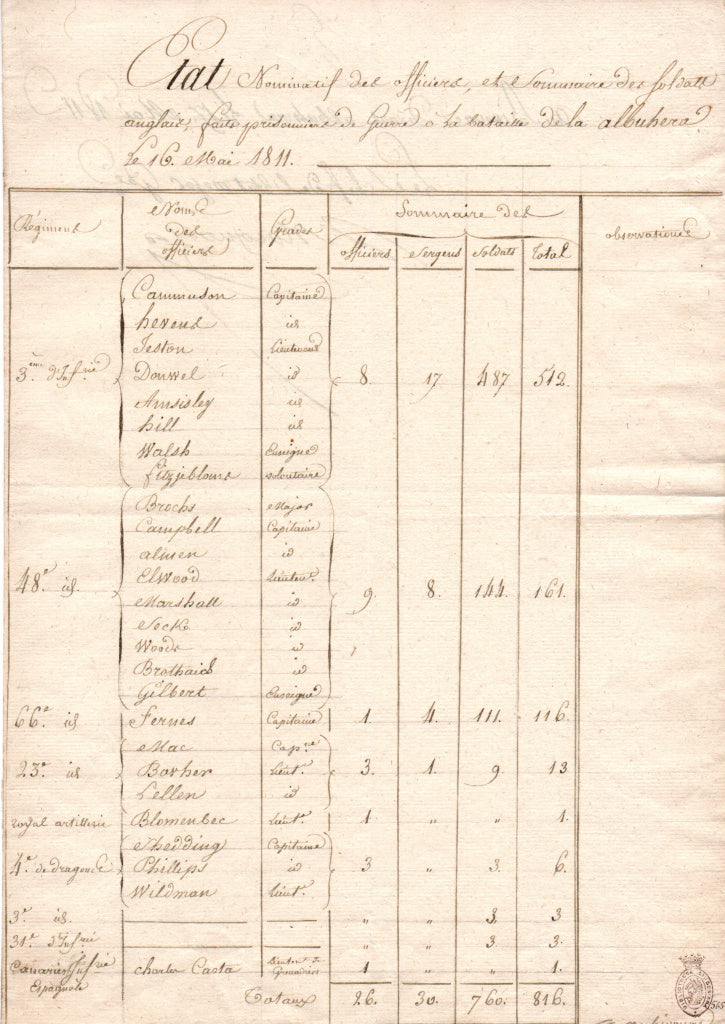 Etat Nominatif des officiers, et Sommaire des soldats
anglais, faits prisonniers de Guerre à la bataille de la albuhera
le 16 Mai 1811.
Régimens Noms des officiers Grades Sommaire des observations
officiers Sergens Soldats Total
3.ème d'Inf.rie 8. 17 487 512.
Cammuson Capitaine
hevens id
Jeston Lieutenant
Douwel id
Amsisley id
hill id
Walsh Enseigne
fitzjeblons volontaire
48.e id. 9. 8. 144. 161.
Brochs Major
Campbell Capitaine
almen id
Elwood Lieuten.t
Marshall id
Sock id
Woods id
Brothaid id
Gilbert Enseigne
66.e id Fernes Capitaine 1. 4. 111. 116.
23.e id 3. 1. 9. 13
Mac Cap.ne
Bovher Lieut.t
Lellen id
royal artillerie Blomenbec Lieut.t 1. " " 1.
4.e de dragons 3 " 3. 6.
Shedding Capitaine
Phillips id
Wildman Lieut.t
3.e id. " " 3. 3
31.e d'Inf.rie " " 3. 3.
Canaries Inf.rie Espagnole charles Casta Lieuten.t de Grenadiers 1 " " 1.
Totaux 26. 30. 760. 816.